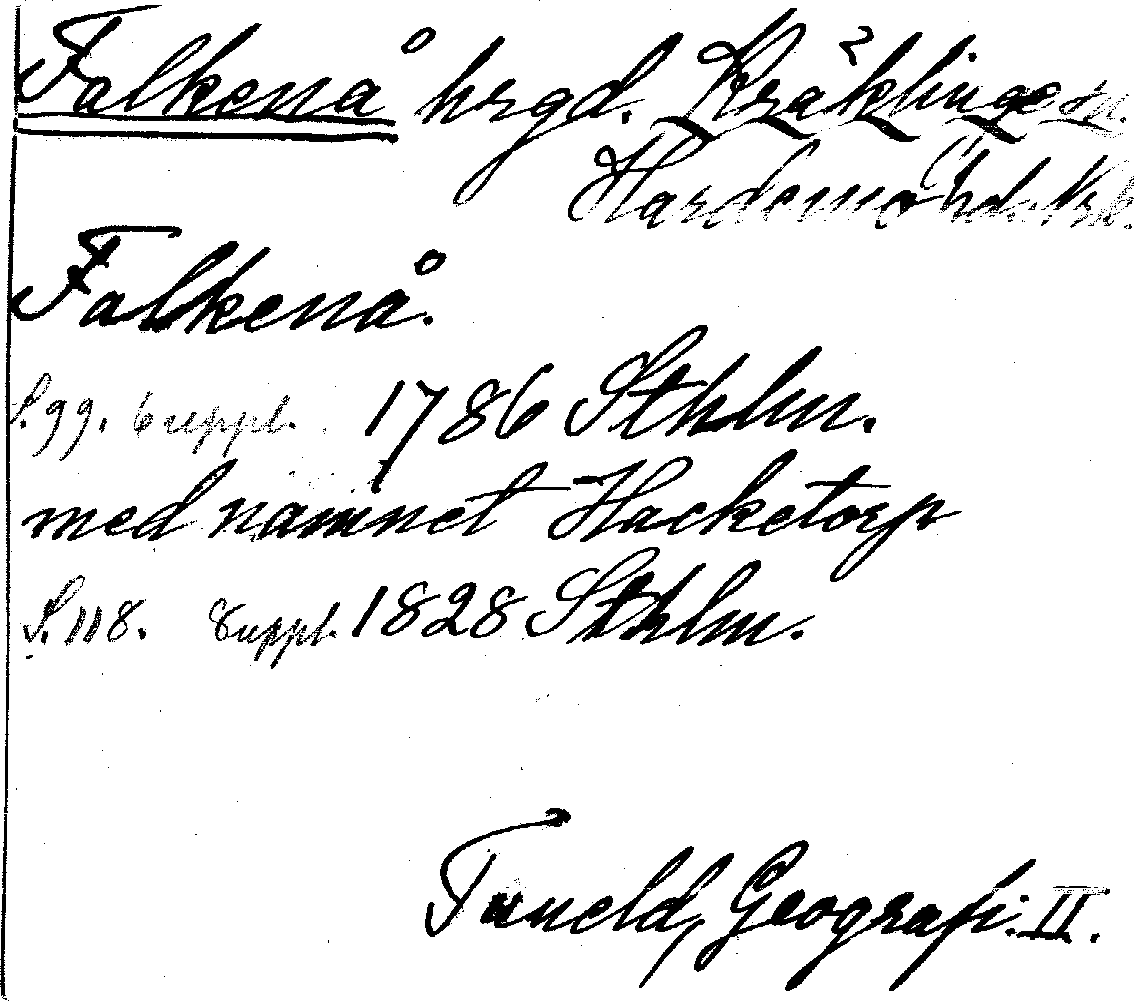 Falkenå hrgd. Kräklinge sn.
Hardemo hd. Nrk.
Falkenå.
S. 99. 6 uppl. 1786 Sthlm.
med namnet Hacketorp
S. 118. 8 uppl. 1828 Sthlm.
Tuneld, Geografi. II.